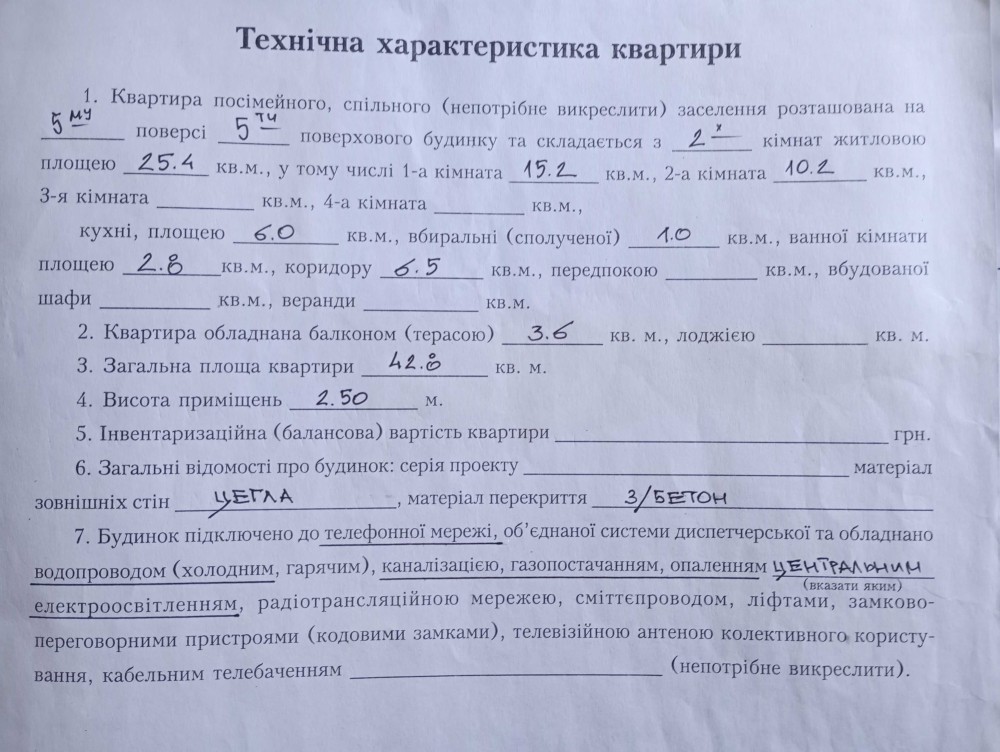 Технічна характеристика квартири
1. Квартира посімейного, спільного (непотрібне викреслити) заселення розташована на
5му поверсі 5ти поверхового будинку та складається з 2х кімнат житловою
площею 25.4 кв.м., у тому числі 1-а кімната 15.2 кв.м., 2-а кімната 10.2 кв.м.,
3-я кімната ________ кв.м., 4-а кімната ________ кв.м.,
кухні, площею 6.0 кв.м., вбиральні (сполученої) 1.0 кв.м., ванної кімнати
площею 2.8 кв.м., коридору 6.5 кв.м., передпокою ________ кв.м., вбудованої
шафи ________ кв.м., веранди ________ кв.м.
2. Квартира обладнана балконом (терасою) 3.6 кв. м., лоджією ________ кв. м.
3. Загальна площа квартири 42.8 кв. м.
4. Висота приміщень 2.50 м.
5. Інвентаризаційна (балансова) вартість квартири ________ грн.
6. Загальні відомості про будинок: серія проекту ________ матеріал
зовнішніх стін ЦЕГЛА, матеріал перекриття З/БЕТОН
7. Будинок підключено до телефонної мережі, об'єднаної системи диспетчерської та обладнано
водопроводом (холодним, гарячим), каналізацією, газопостачанням, опаленням ЦЕНТРАЛЬНИМ
(вказати яким)
електроосвітленням, радіотрансляційною мережею, сміттєпроводом, ліфтами, замково-
переговорними пристроями (кодовими замками), телевізійною антеною колективного користу-
вання, кабельним телебаченням ________ (непотрібне викреслити).